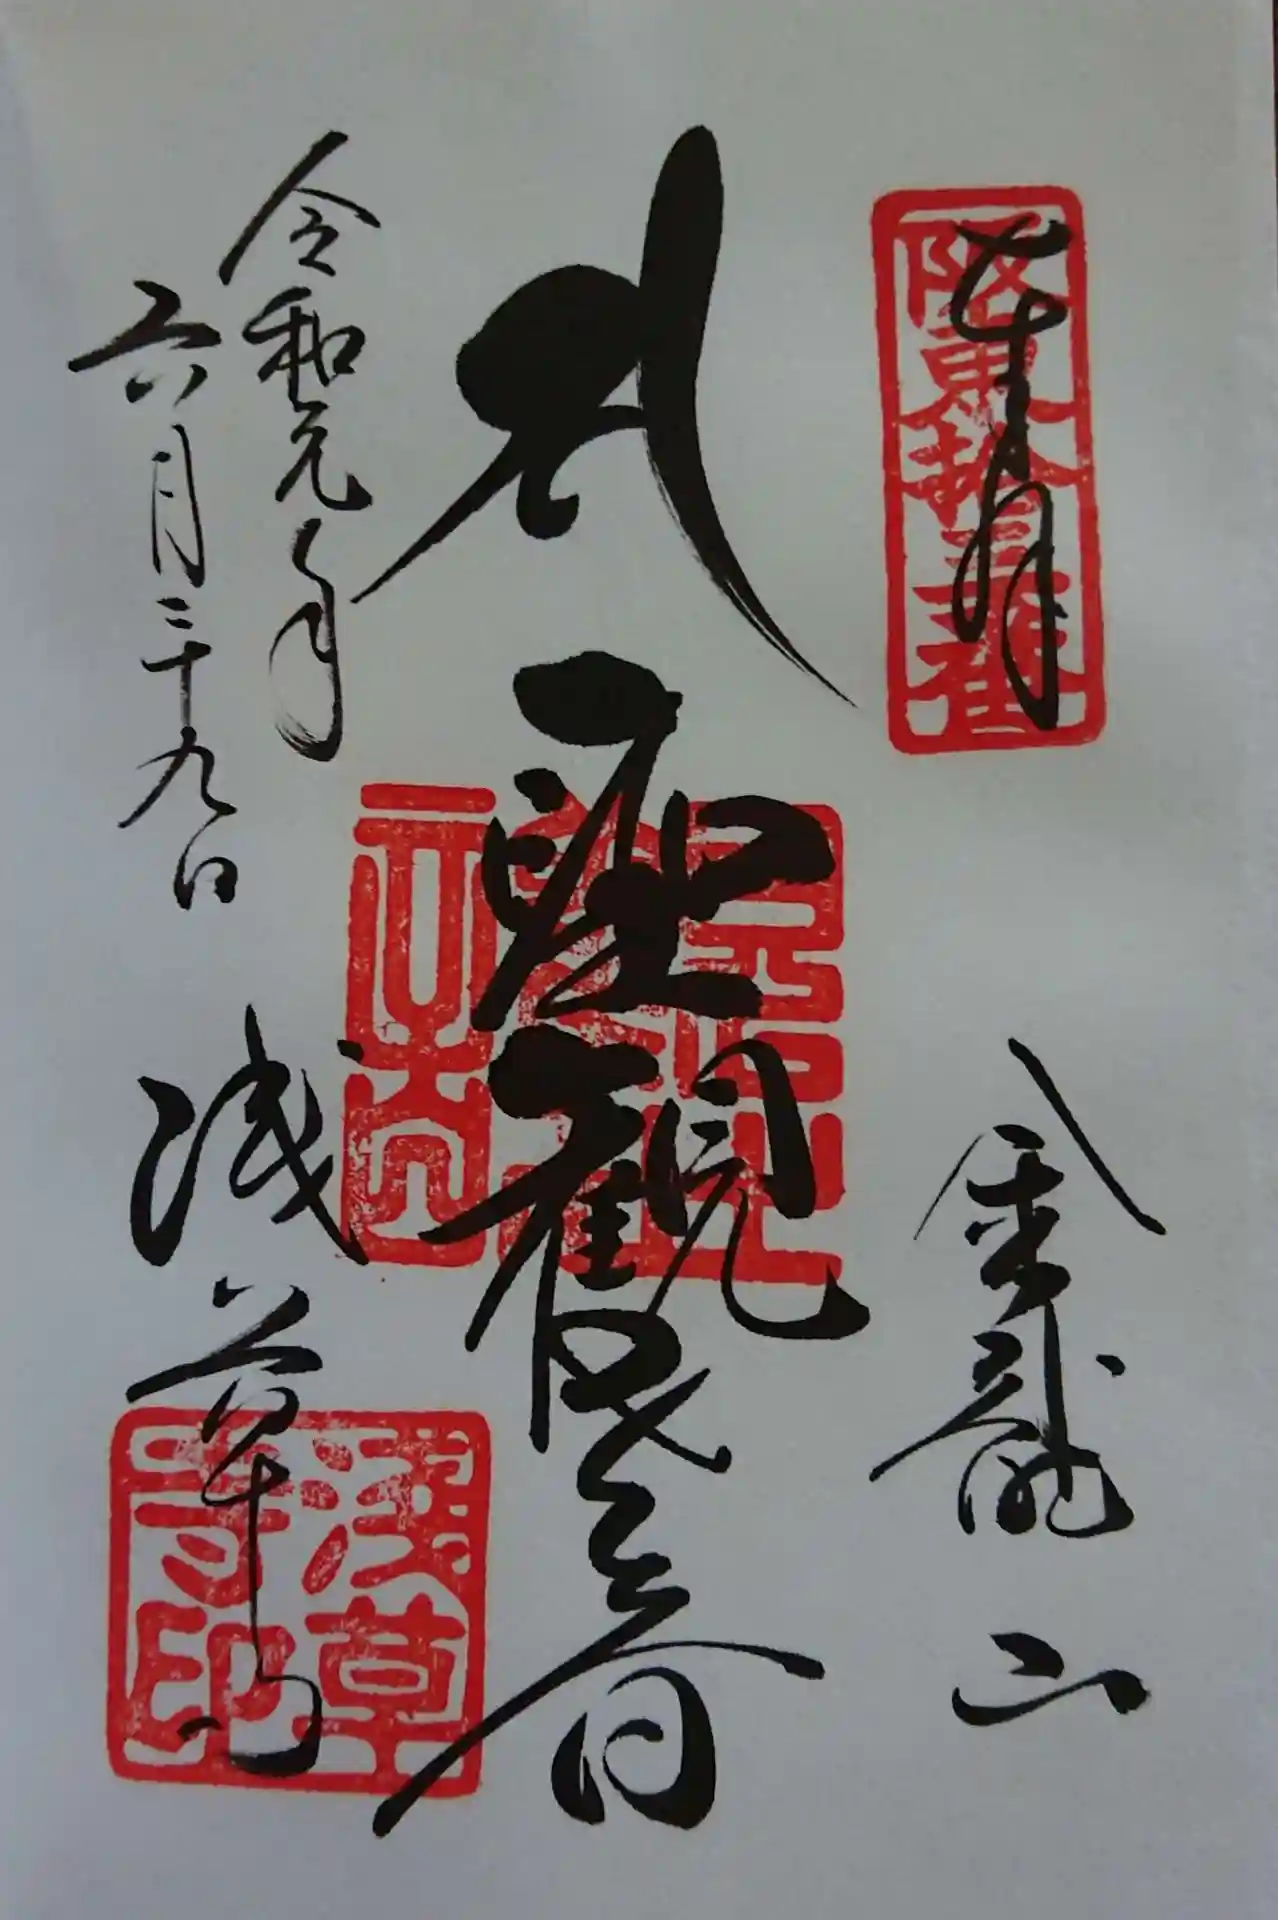 奉拝
坂東拾三番
金龍山
聖観世音
令和元年
六月二十九日
浅草寺
浅草寺印